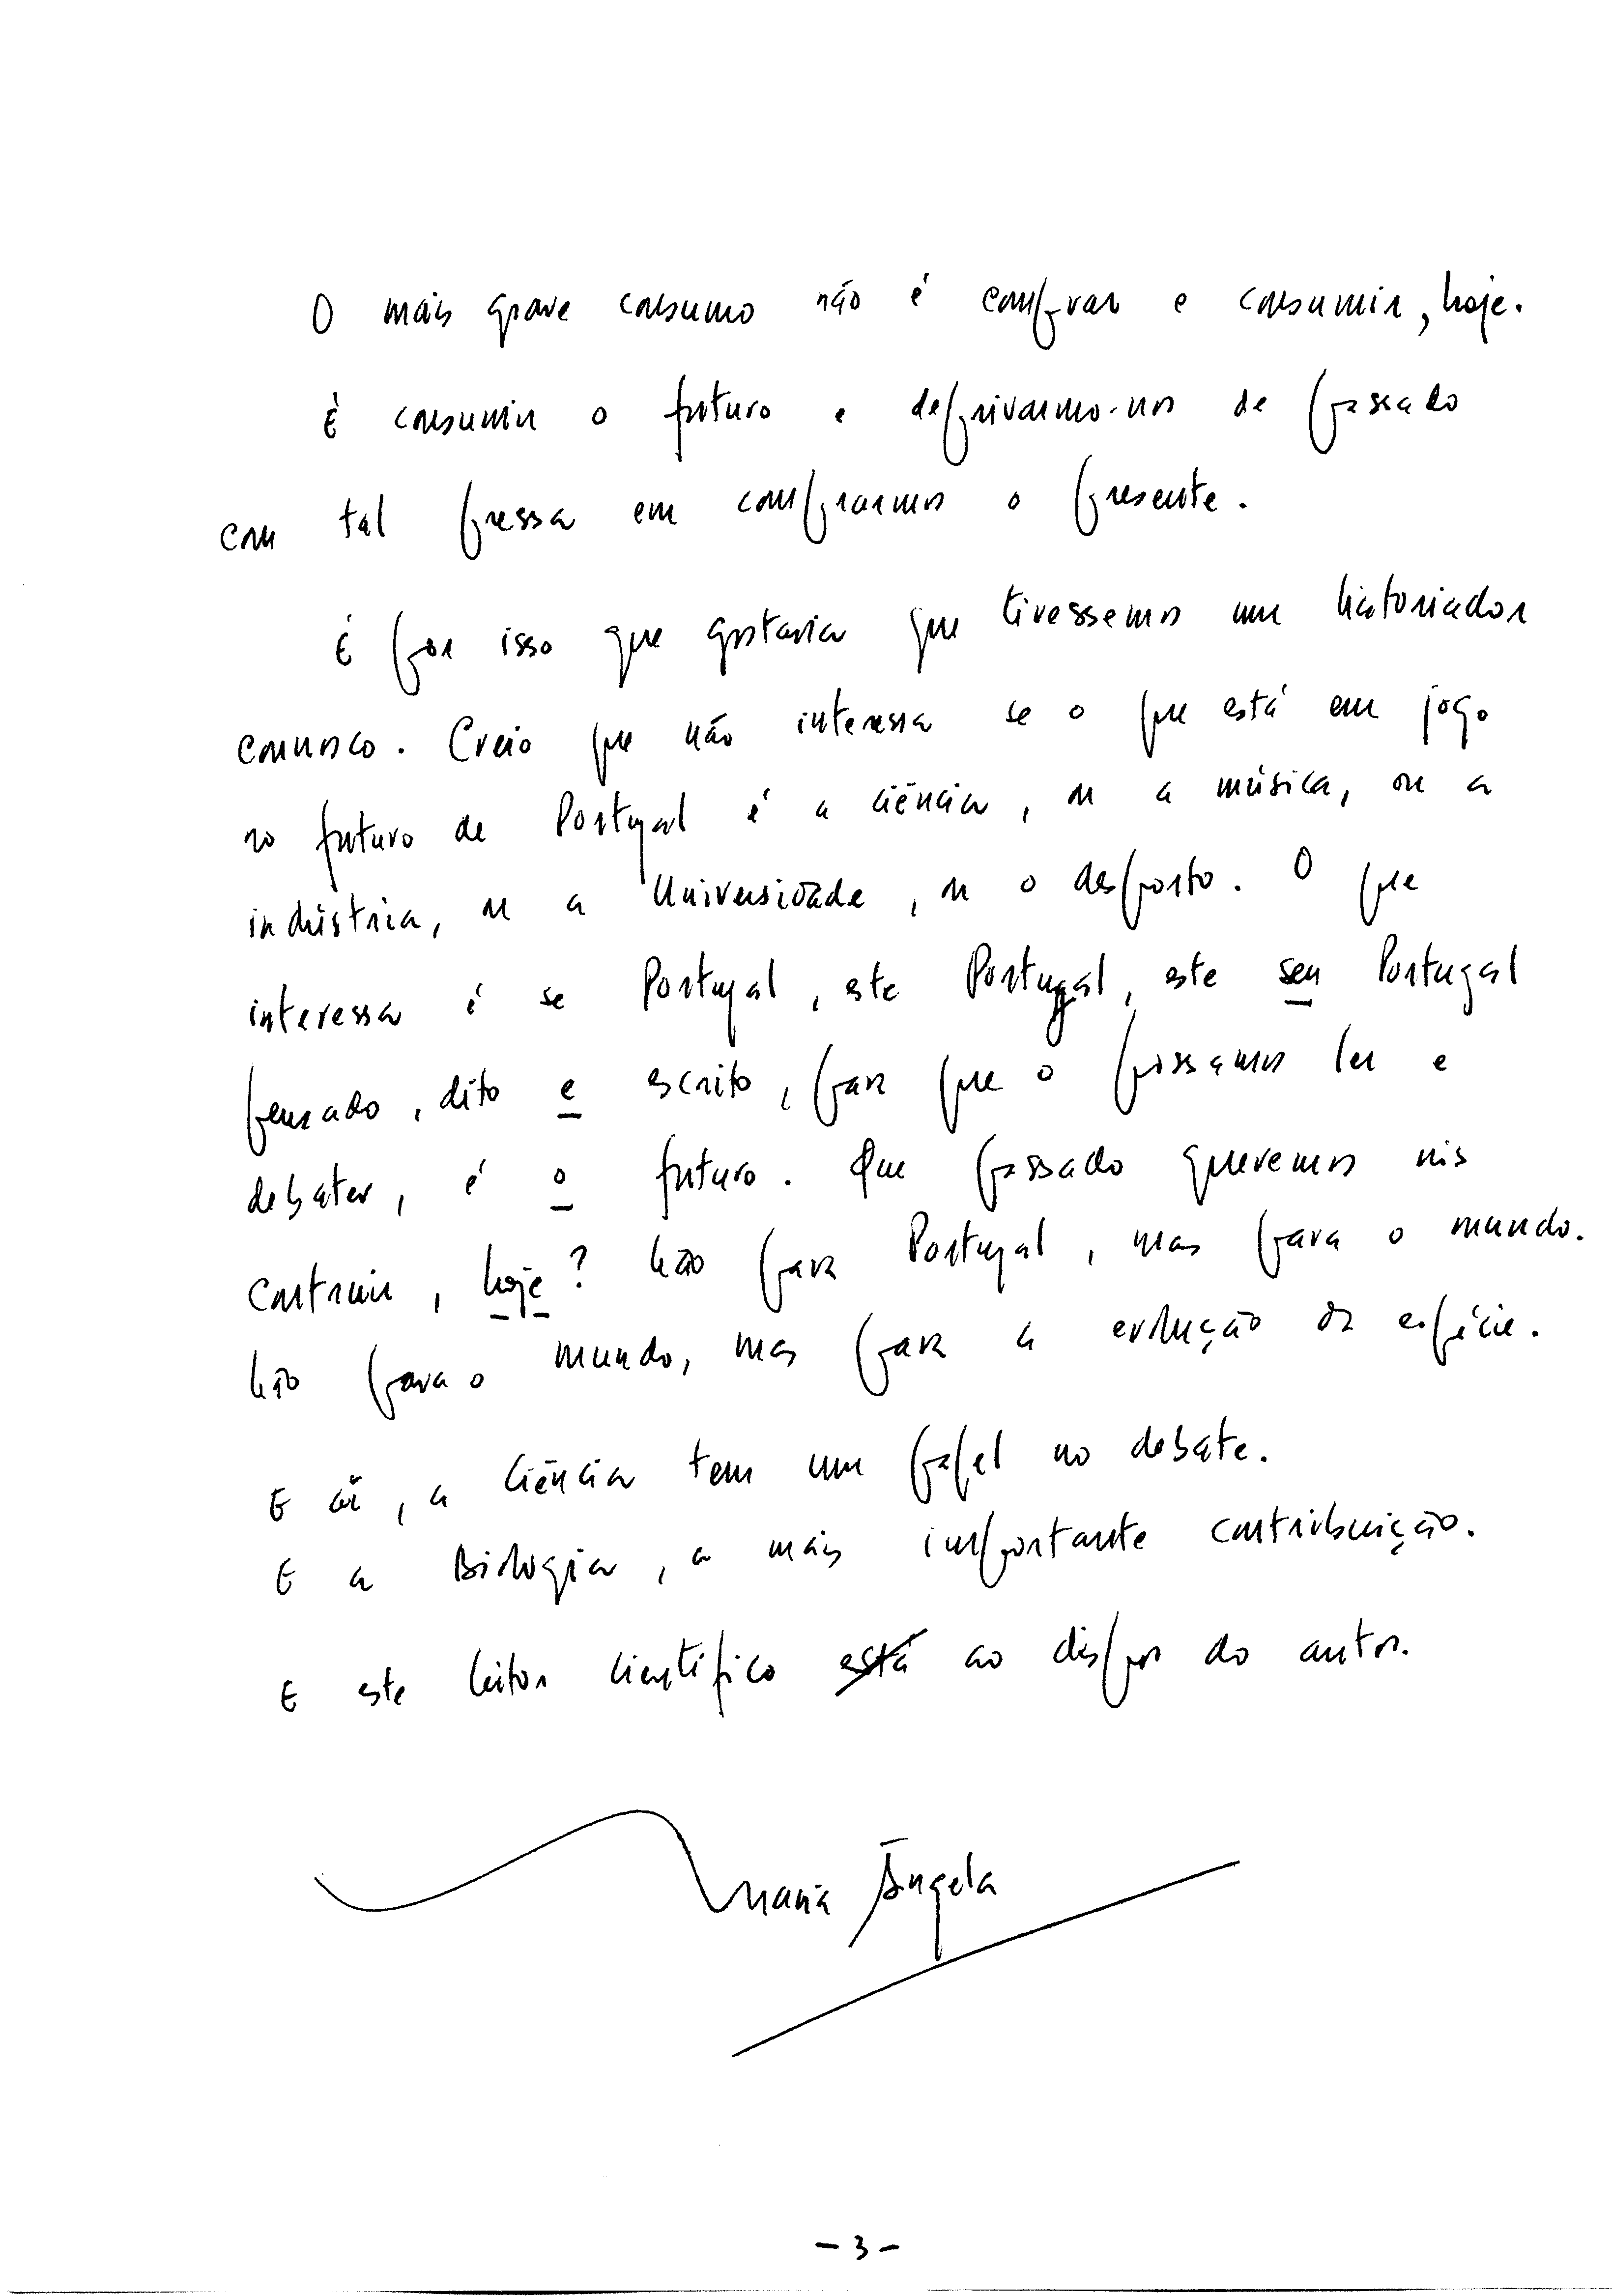 O mais grave consumo não é comprar e consumir, hoje.
É consumir o futuro e deprivarmo-nos de passado
com tal pressa em comprarmos o presente.
É por isso que gostaria que tivessemos um historiador
connosco. Creio que não interessa se o que está em jogo
no futuro de Portugal é a ciência, ou a música, ou a
indústria, ou a Universidade, ou o desporto. O que
interessa é se Portugal, este Portugal, este seu Portugal
pensado, dito e escrito, para que o possamos ler e
debater, é o futuro. Que passado queremos nós
construir, hoje? Não para Portugal, mas para o mundo.
Não para o mundo, mas para a evolução da espécie.
E aí, a ciência tem um papel no debate.
E a Biologia, a mais importante contribuição.
E este leitor científico está ao dispor do autor.
Maria Ângela
- 3 -